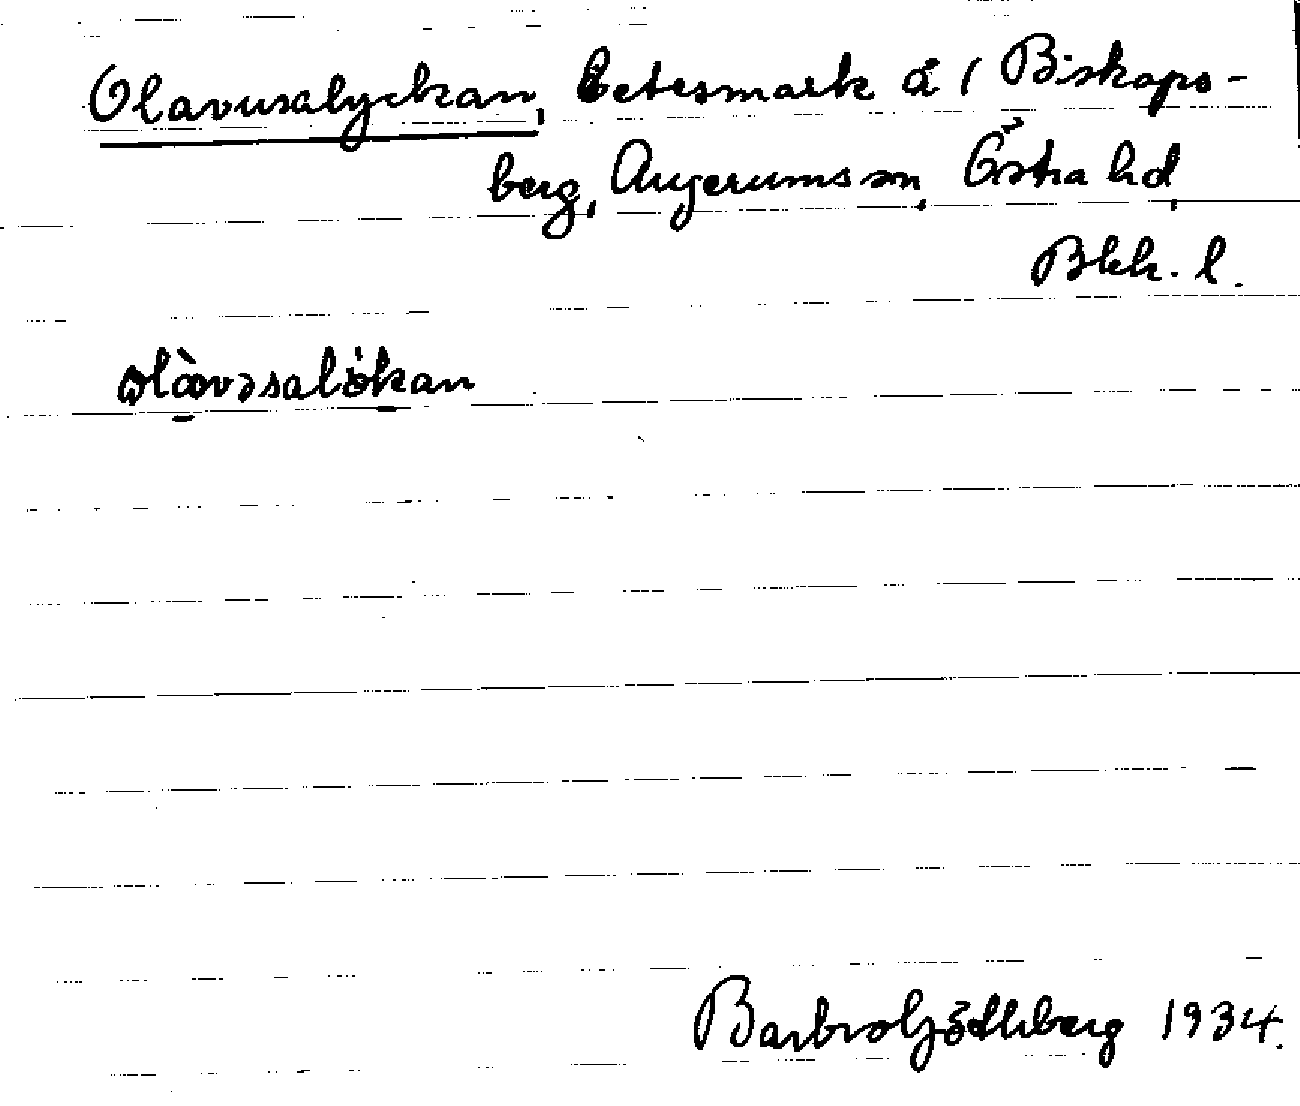 Olavusalyckan, Betesmark å 1 Biskops-
berg, Augerums sn, Östra hd,
Blek. l.
olàvəsalökan
Barbro Göthberg 1934.